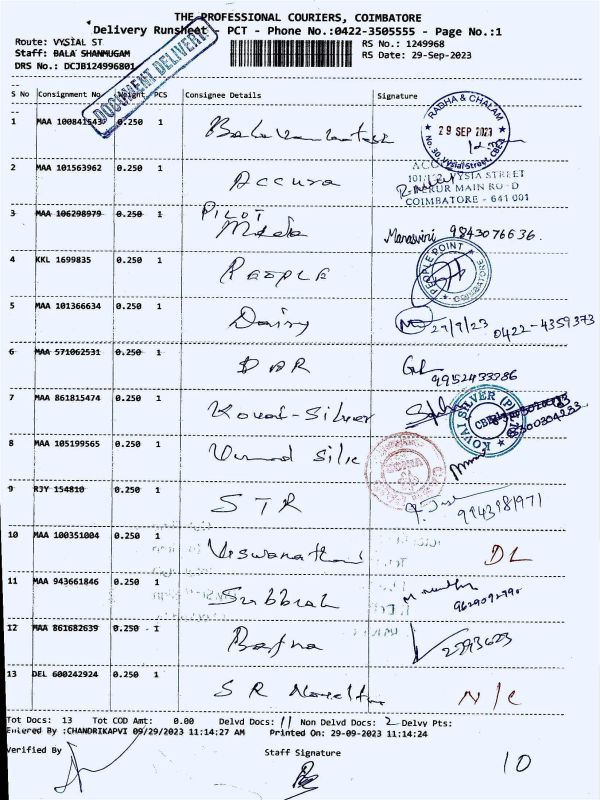 THE PROFESSIONAL COURIERS, COIMBATORE
Delivery Runsheet - PCT - Phone No.:0422-3505555 - Page No.:1
Route: VYSIAL ST
RS No.: 1249968
Staff: BALA SHANMUGAM
RS Date: 29-Sep-2023
DRS No.: DCJB124996801
DOCUMENT DELIVERY
S No Consignment No Weight PCS Consignee Details Signature
1 MAA 100841543 0.250 1
RABHA & CHALAM
29 SEP 2023
No. 30, Vysial Street, CBE-1
2 MAA 101563962 0.250 1 Accura
VYSIA STREET
COIMBATORE - 641 001
3 MAA 106298979 0.250 1 PILOT
Manaswini 9843076636.
4 KKL 1699835 0.250 1 PEOPLE
PEOPLE POINT
COIMBATORE
5 MAA 101366634 0.250 1 Dairy 27/9/23 0422-4359373
6 MAA 571062531 0.250 1 DAR
9952433286
7 MAA 861815474 0.250 1 Kovai-Silver
KOVAI SILVER (P)
8 MAA 105199565 0.250 1
9 RJY 154810 0.250 1 STR
9943981971
10 MAA 100351004 0.250 1 Viswanathan DL
11 MAA 943661846 0.250 1 Subbiah
12 MAA 861682639 0.250 1 Bafna
13 DEL 600242924 0.250 1 SR N/C
Tot Docs: 13 Tot COD Amt: 0.00 Delvd Docs: 11 Non Delvd Docs: 2 Delvy Pts:
Entered By :CHANDRIKAPVI 09/29/2023 11:14:27 AM Printed On: 29-09-2023 11:14:24
Verified By Staff Signature
10